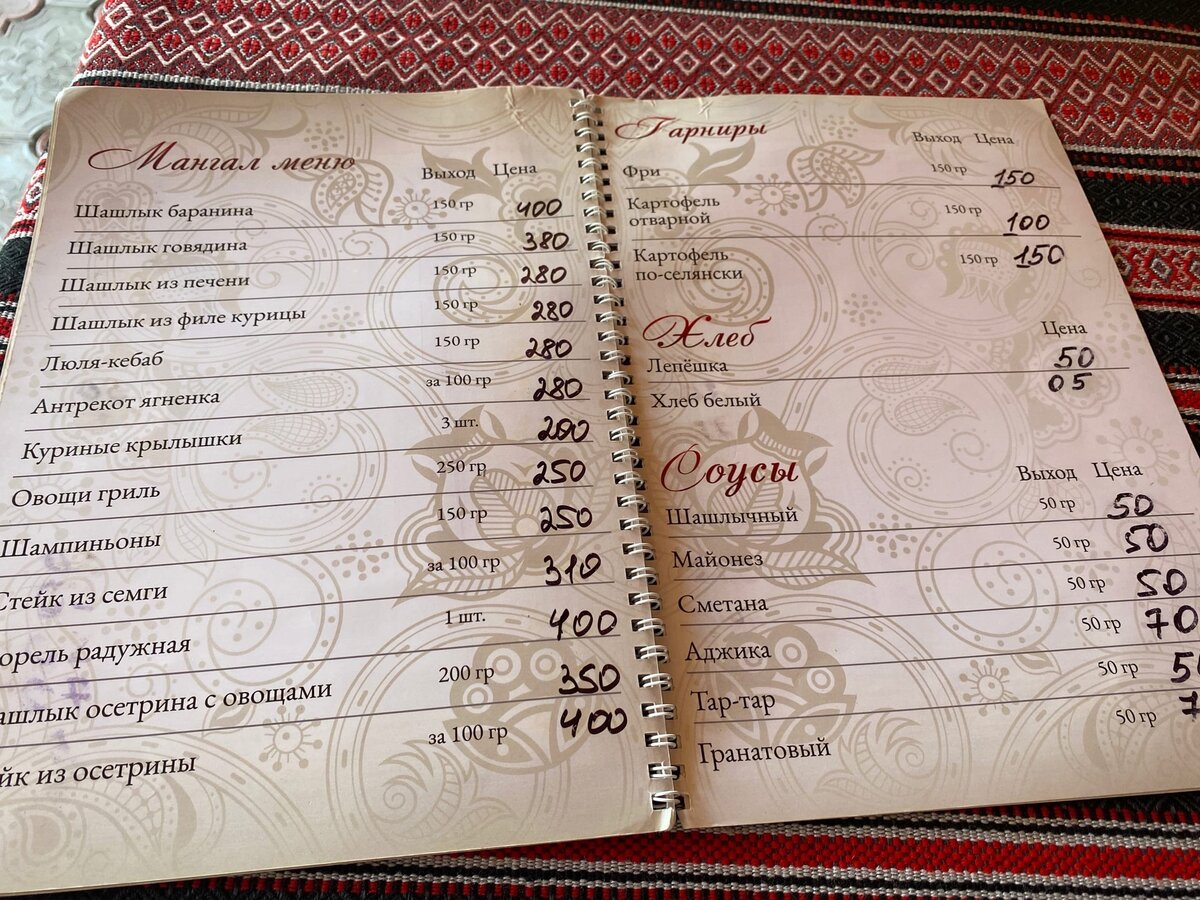 Мангал меню Выход Цена
Шашлык баранина 150 гр 400
Шашлык говядина 150 гр 380
Шашлык из печени 150 гр 280
Шашлык из филе курицы 150 гр 280
Люля-кебаб 150 гр 280
Антрекот ягненка за 100 гр 280
Куриные крылышки 3 шт. 200
Овощи гриль 250 гр 250
Шампиньоны 150 гр 250
Стейк из семги за 100 гр 310
орель радужная 1 шт. 400
ашлык осетрина с овощами 200 гр 350
йк из осетрины за 100 гр 400
Гарниры Выход Цена
Фри 150 гр 150
Картофель
отварной 150 гр 100
Картофель
по-селянски 150 гр 150
Хлеб Цена
Лепёшка 50
Хлеб белый 05
Соусы Выход Цена
Шашлычный 50 гр 50
Майонез 50 гр 50
Сметана 50 гр 50
Аджика 50 гр 70
Тар-тар 50 гр
Гранатовый 50 гр